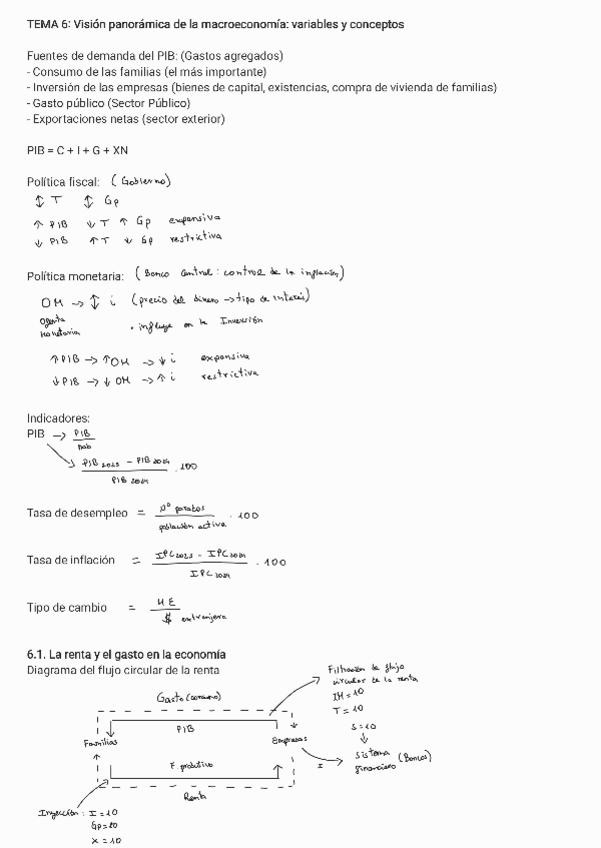 TEMA 6: Visión panorámica de la macroeconomía: variables y conceptos
Fuentes de demanda del PIB: (Gastos agregados)
- Consumo de las familias (el más importante)
- Inversión de las empresas (bienes de capital, existencias, compra de vivienda de familias)
- Gasto público (Sector Público)
- Exportaciones netas (sector exterior)
PIB = C + I + G + XN
Política fiscal: (Gobierno)
↕ T ↕ Gp
↑ PIB ↓ T ↑ Gp expansiva
↓ PIB ↑ T ↓ Gp restrictiva
Política monetaria: (Banco Central: control de la inflación)
OM → ↕ i (precio del dinero → tipo de interés)
Oferta
Monetaria • influye en la Inversión
↑ PIB → ↑ OM → ↓ i expansiva
↓ PIB → ↓ OM → ↑ i restrictiva
Indicadores:
PIB → PIB
hab
PIB 2025 - PIB 2024 . 100
PIB 2024
Tasa de desempleo = nº parados . 100
población activa
Tasa de inflación = IPC 2025 - IPC 2024 . 100
IPC 2024
Tipo de cambio = ME
$ extranjera
6.1. La renta y el gasto en la economía
Diagrama del flujo circular de la renta
Filtración de flujo
circular de la renta
IM = 10
T = 10
S = 10
↓
Sistema (Bancos)
financiero
Gasto (consumo)
PIB
Familias
Empresas
I
F. productivo
Renta
Inyección: I = 10
Gp = 10
X = 10